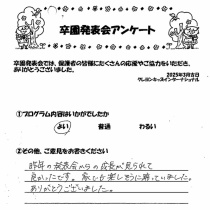 卒園発表会アンケート
卒園発表会では、保護者の皆様にたくさんの応援やご協力をいただき、
ありがとうございました。
2025年3月吉日
クレヨンキッズインターナショナル
①プログラム内容はいかがでしたか
よい 普通 わるい
②その他、ご意見をお書きください
昨年の発表会からの成長が見られて
良かったです。楽しそうに踊っていました。
ありがとうございました。